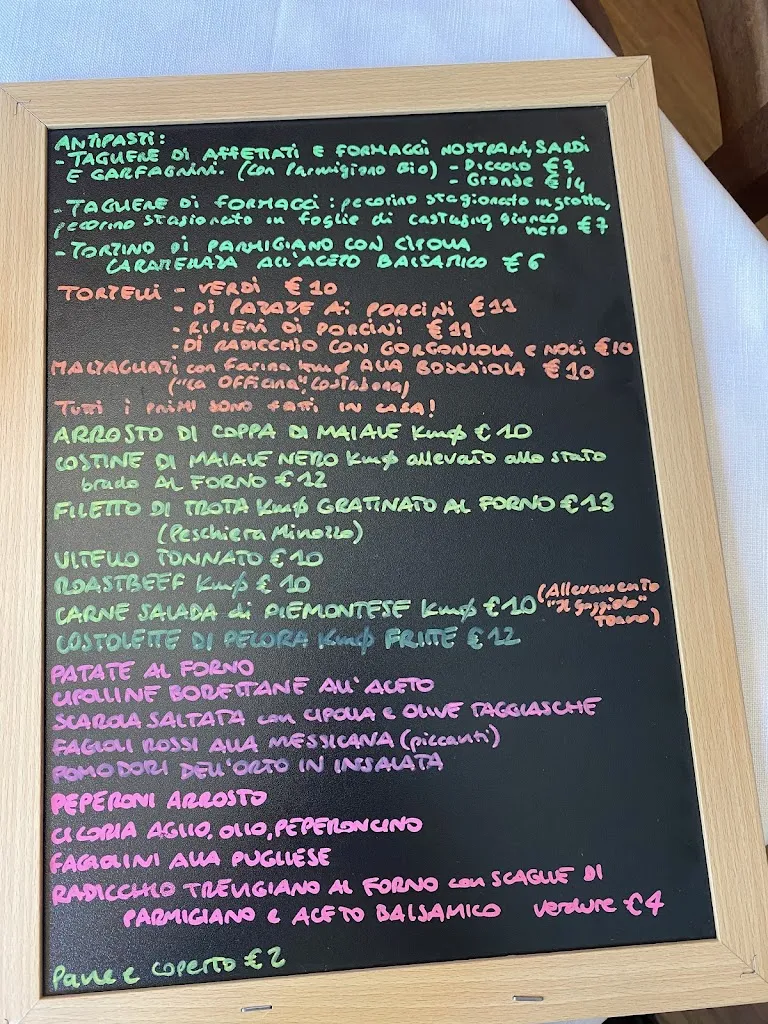 ANTIPASTI:
- TAGLIERE DI AFFETTATI E FORMAGGI NOSTRANI, SARDI
E GARFAGNINI. (con Parmigiano Bio) - Piccolo €7
- Grande €14
- TAGLIERE DI FORMAGGI: pecorino stagionato in grotta,
pecorino stagionato in foglie di castagno, giunco
nero €7
- TORTINO DI PARMIGIANO CON CIPOLLA
CARAMELLATA ALL'ACETO BALSAMICO €6
TORTELLI - VERDI €10
- DI PATATE AI PORCINI €11
- RIPIENI DI PORCINI €11
- DI RADICCHIO CON GORGONZOLA E NOCI €10
MALTAGLIATI con Farina kmø ALLA BOSCAIOLA €10
("La OFFICINA", Costabona)
Tutti i primi sono fatti in casa!
ARROSTO DI COPPA DI MAIALE Kmø €10
COSTINE DI MAIALE NERO Kmø allevato allo stato
brado AL FORNO €12
FILETTO DI TROTA Kmø GRATINATO AL FORNO €13
(Peschiera Minozzo)
VITELLO TONNATO €10
ROASTBEEF Kmø €10
CARNE SALADA di PIEMONTESE Kmø €10 (Allevamento
"Il Gaggiolo"
Toano)
COSTOLETTE DI PECORA Kmø FRITTE €12
PATATE AL FORNO
CIPOLLINE BORETTANE ALL'ACETO
SCAROLA SALTATA con CIPOLLA E OLIVE TAGGIASCHE
FAGIOLI ROSSI ALLA MESSICANA (piccanti)
POMODORI DELL'ORTO IN INSALATA
PEPERONI ARROSTO
CICORIA AGLIO, OLIO, PEPERONCINO
FAGIOLINI ALLA PUGLIESE
RADICCHIO TREVIGIANO AL FORNO con SCAGLIE DI
PARMIGIANO E ACETO BALSAMICO verdure €4
Pane e coperto €2